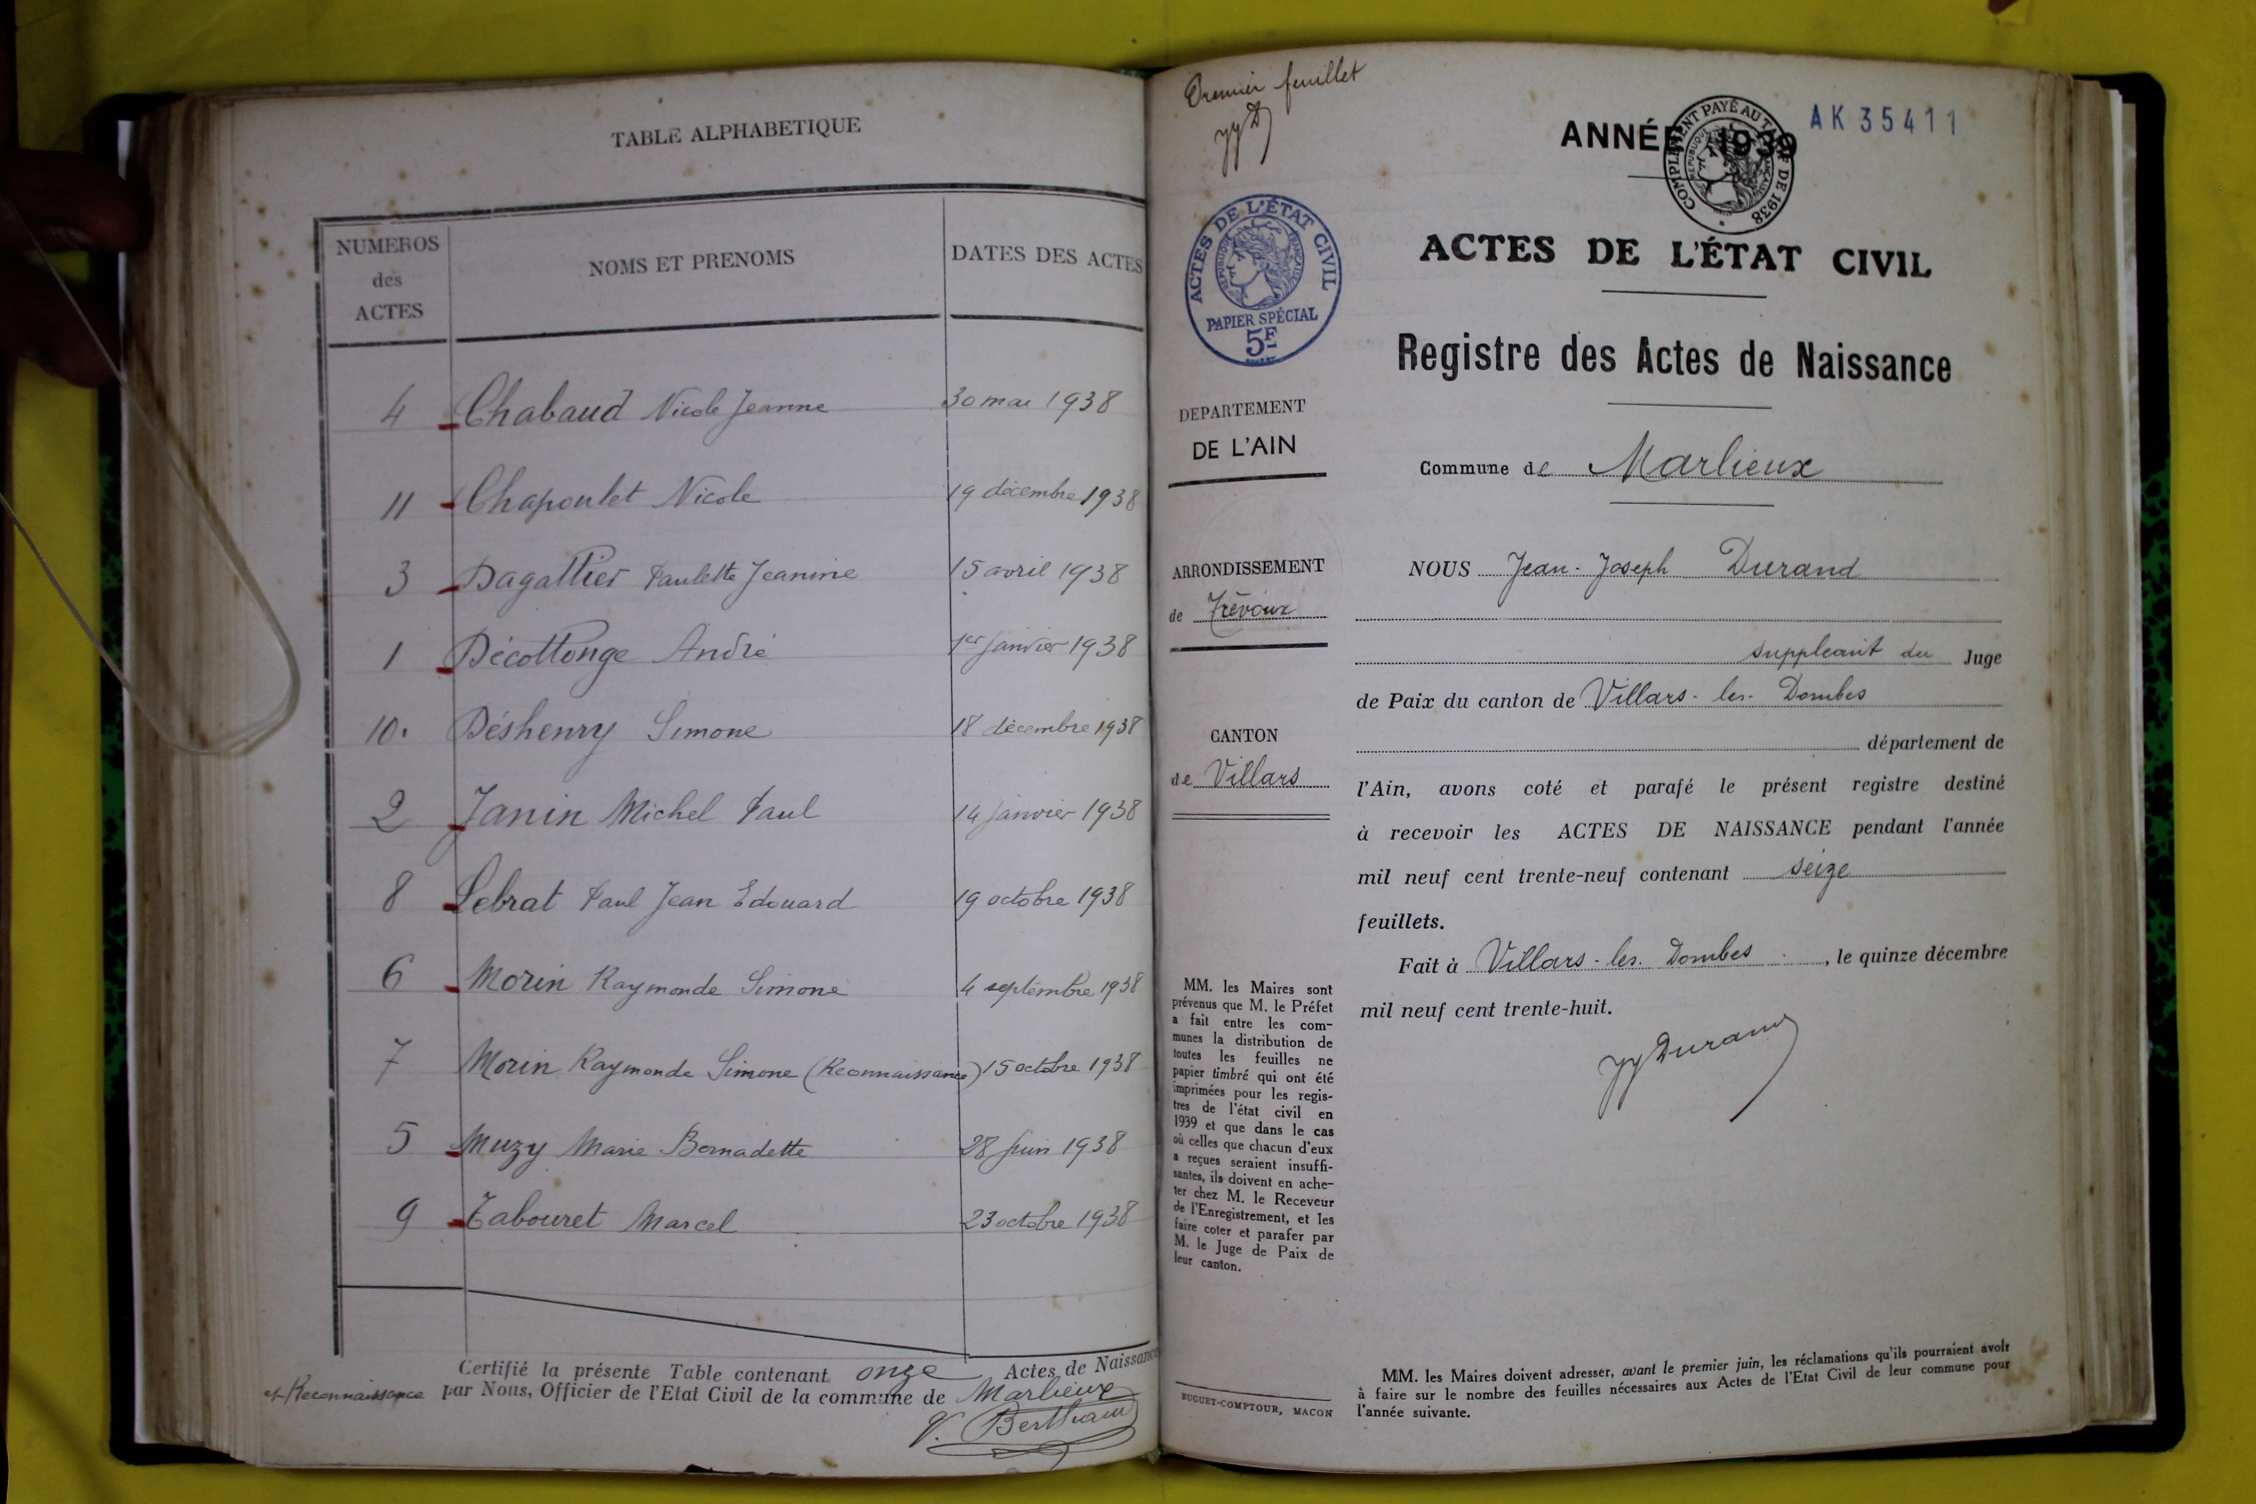 TABLE ALPHABETIQUE
NUMEROS
des
ACTES
NOMS ET PRENOMS
DATES DES ACTES
4 Chabaud Nicole Jeanne 30 mai 1938
11 Chapoulet Nicole 19 décembre 1938
3 Dagallier Paulette Jeanine 15 avril 1938
1 Décottonge André 1er janvier 1938
10. Déshenry Simone 18 décembre 1938
2 Janin Michel Paul 14 janvier 1938
8 Lebrat Paul Jean Edouard 19 octobre 1938
6 Morin Raymonde Simone 4 septembre 1938
7 Morin Raymonde Simone (Reconnaissance) 15 octobre 1938
5 Muzy Marie Bernadette 28 juin 1938
9 Tabouret Marcel 23 octobre 1938
Certifié la présente Table contenant onze Actes de Naissance
et Reconnaissance par Nous, Officier de l'Etat Civil de la commune de Marlieux
Premier feuillet
ANNÉE 1939
COMPLEMENT PAYÉ AU TARIF DE 1938
AK 35411
ACTES DE L'ÉTAT CIVIL
REPUBLIQUE FRANÇAISE
PAPIER SPÉCIAL
5F
ACTES DE L'ÉTAT CIVIL
Registre des Actes de Naissance
DEPARTEMENT
DE L'AIN
ARRONDISSEMENT
de Trévoux
CANTON
de Villars
MM. les Maires sont
prévenus que M. le Préfet
a fait entre les com-
munes la distribution de
toutes les feuilles ne
papier timbré qui ont été
imprimées pour les regis-
tres de l'état civil en
1939 et que dans le cas
où celles que chacun d'eux
a reçues seraient insuffi-
santes, ils doivent en ache-
ter chez M. le Receveur
de l'Enregistrement, et les
faire coter et parafer par
M. le Juge de Paix de
leur canton.
BUGUET-COMPTOUR, MACON
Commune de Marlieux
NOUS Jean-Joseph Durand
suppleant du Juge
de Paix du canton de Villars-les-Dombes
département de
l'Ain, avons coté et parafé le présent registre destiné
à recevoir les ACTES DE NAISSANCE pendant l'année
mil neuf cent trente-neuf contenant seize
feuillets.
Fait à Villars-les-Dombes, le quinze décembre
mil neuf cent trente-huit.
JJ Durand
MM. les Maires doivent adresser, avant le premier juin, les réclamations qu'ils pourraient avoir
à faire sur le nombre des feuilles nécessaires aux Actes de l'Etat Civil de leur commune pour
l'année suivante.